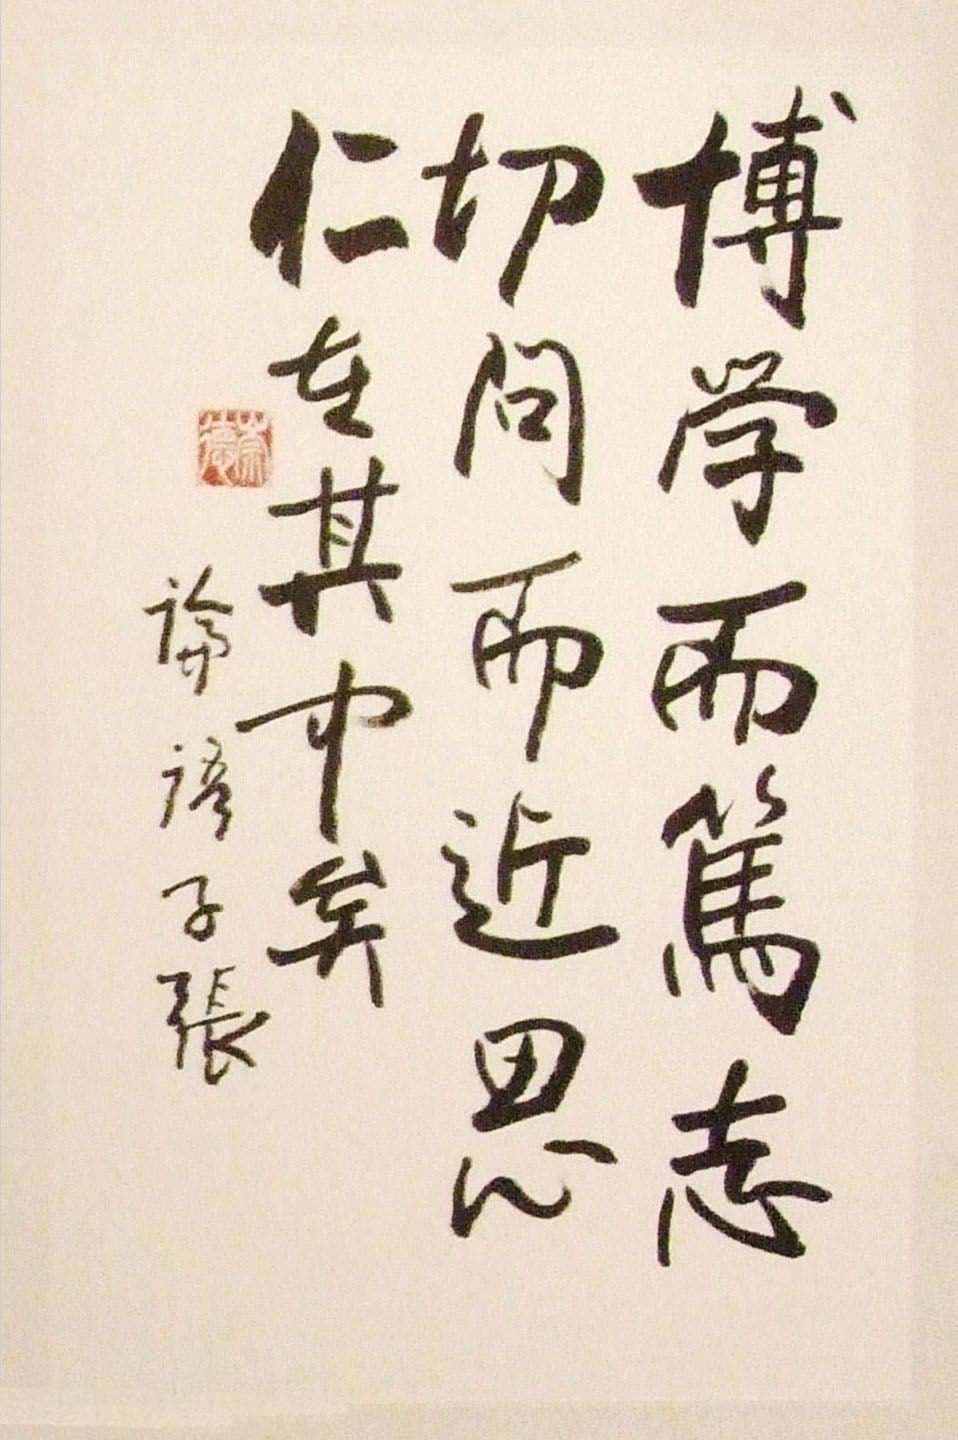 博学而篤志
切问而近思
仁在其中矣
論語子張